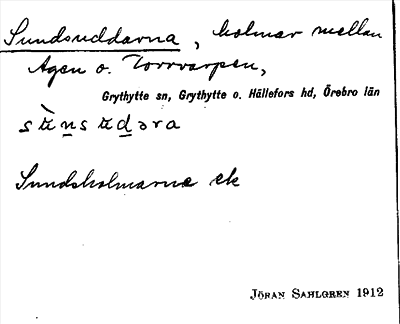 Sundsuddarna, holmar mellan
Agen o. Torrvarpen,
Grythytte sn, Grythytte o. Hällefors hd, Örebro län
Sundsholmarna ek
JÖRAN SAHLGREN 1912